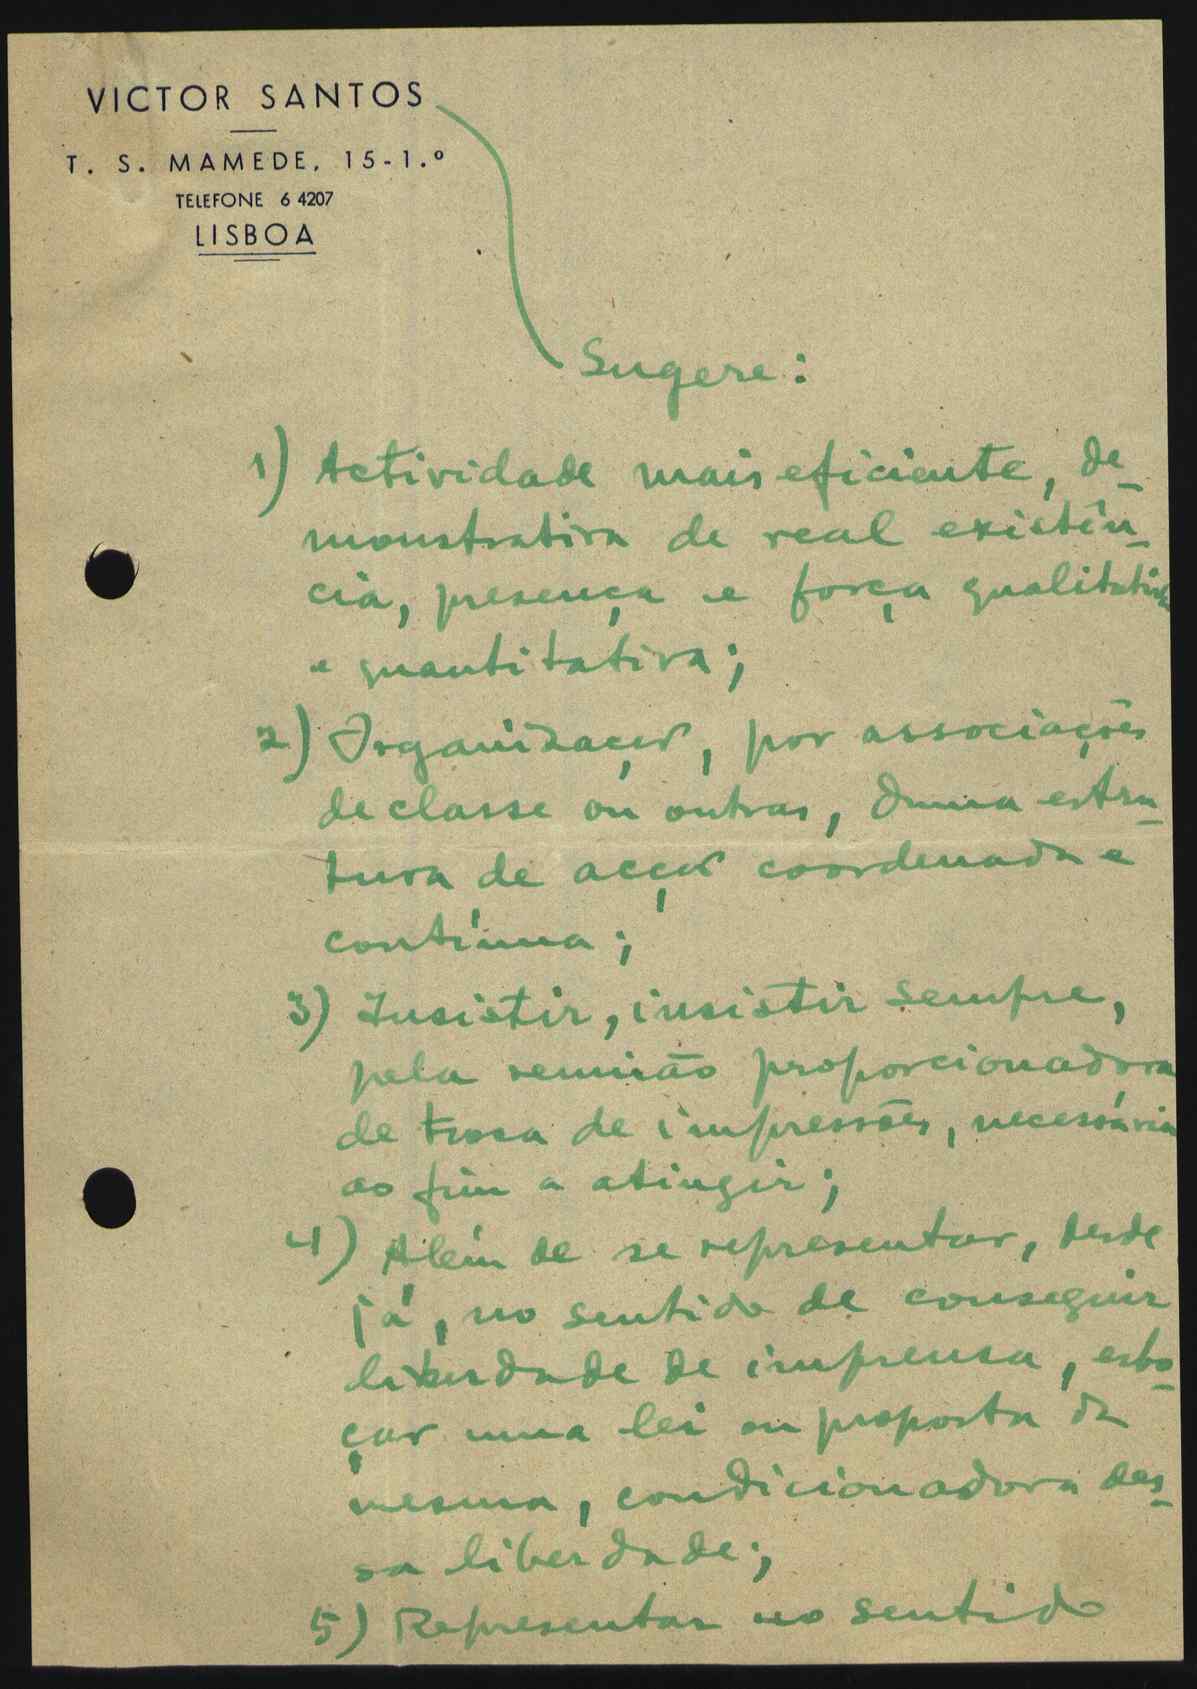 VICTOR SANTOS
T. S. MAMEDE, 15-1.º
TELEFONE 6 4207
LISBOA
Sugere:
1) Actividade mais eficiente, de-
monstrativa de real existên-
cia, presença e força qualitativa
e quantitativa;
2) Organização, por associações
de classe ou outras, duma estru-
tura de acção coordenada e
contínua;
3) Insistir, insistir sempre,
pela reunião proporcionadora
de troca de impressões, necessária
ao fim a atingir;
4) Além de se representar, desde
já, no sentido de conseguir
liberdade de imprensa, esbo-
çar uma lei ou proposta da
mesma, condicionadora des-
sa liberdade;
5) Representar no sentido